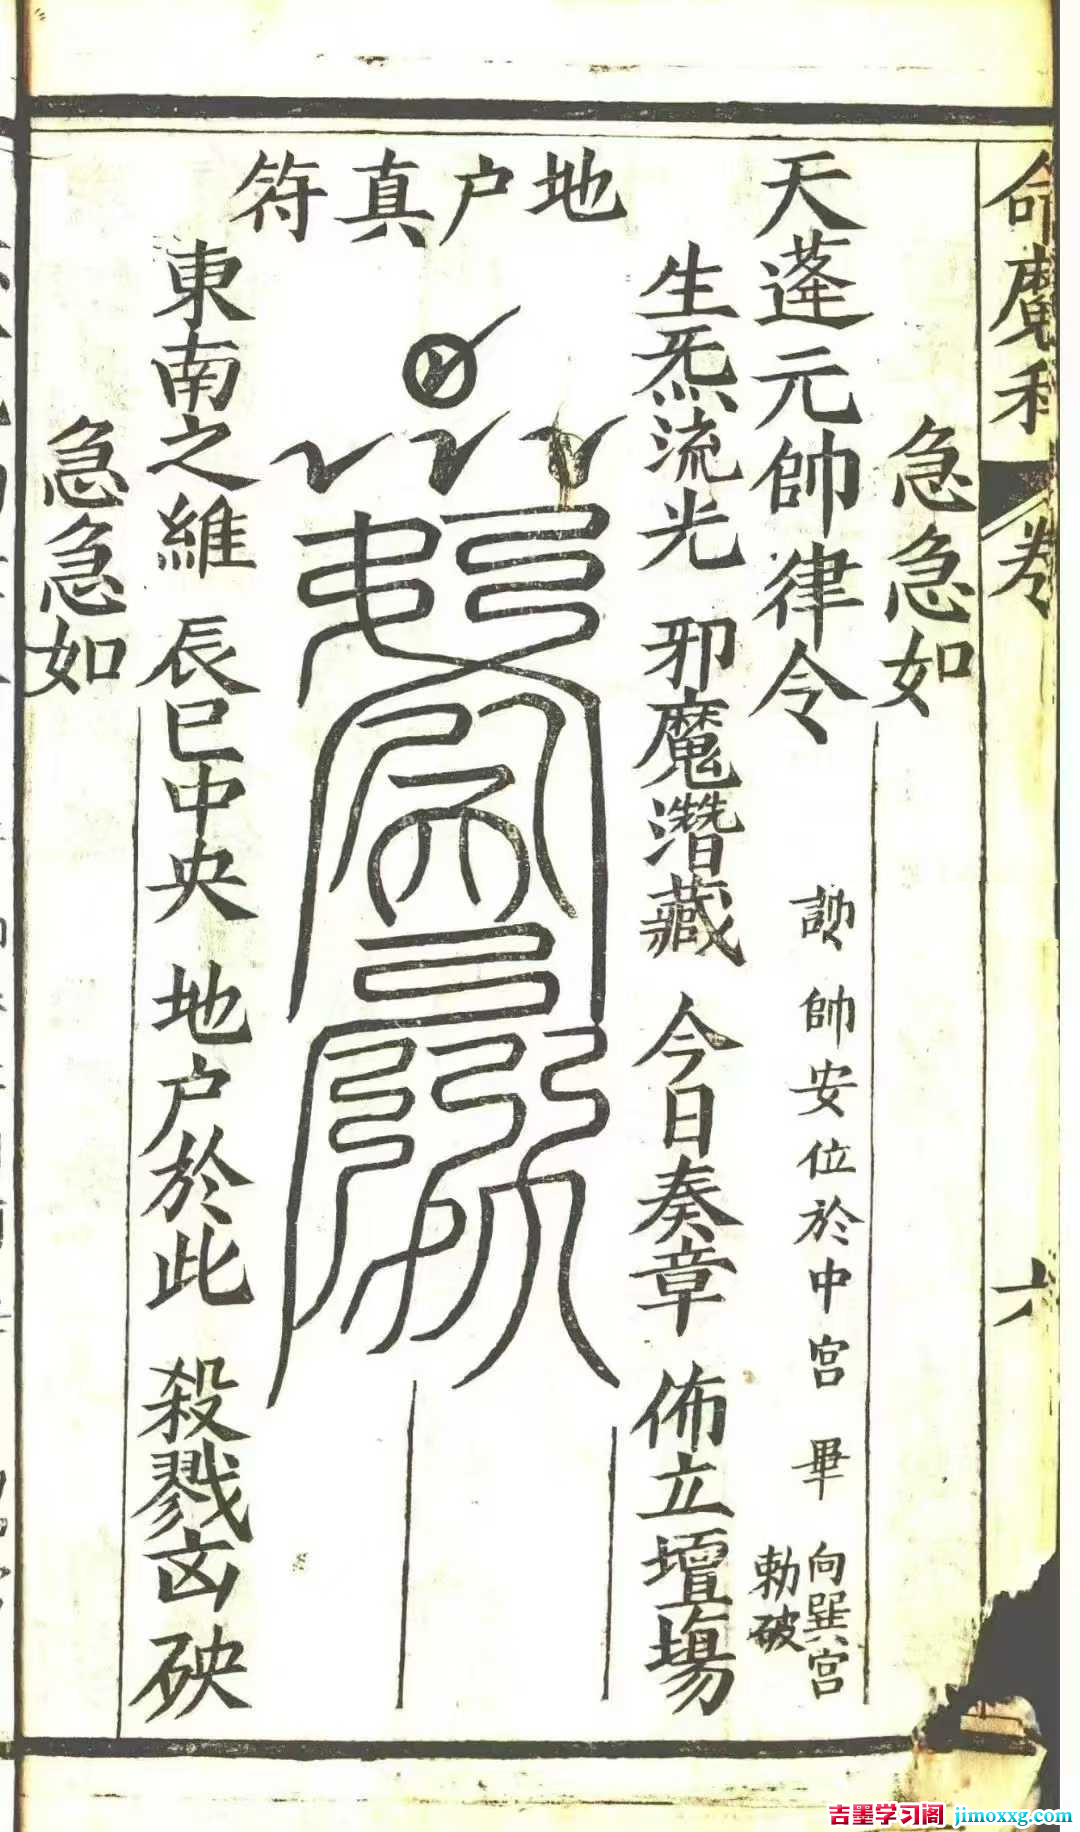 命魔科
卷
六
急急如
天蓬元帥律令
諛帥安位於中宮 畢
向巽宮
勅破
生炁流光 邪魔潛藏 今日奏章 佈立壇場
地户真符
東南之維 辰巳中央 地户於此 殺戮凶殃
急急如
吉墨学习阁 jimoxxg.com